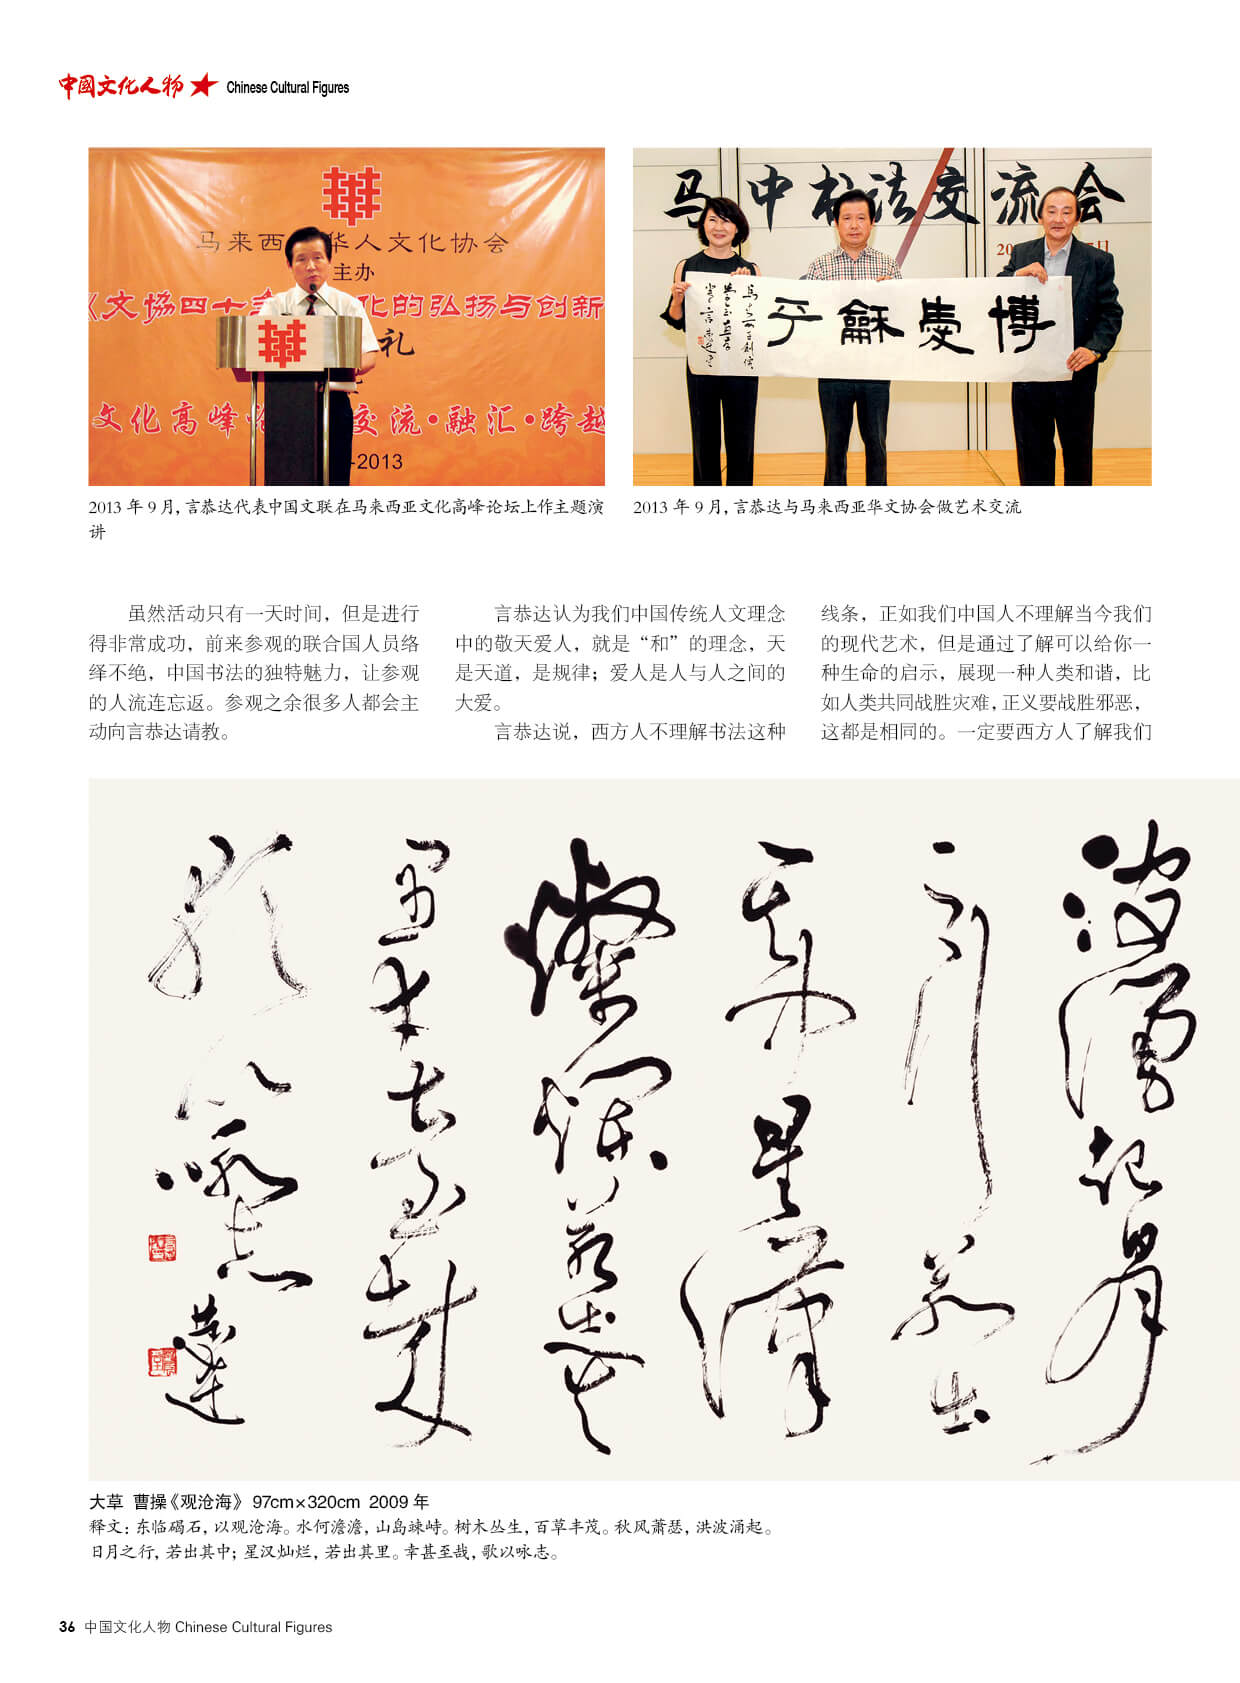 中國文化人物 Chinese Cultural Figures
马来西 华人文化协会
主办
《文協四十 化的弘扬与创新
礼
文化高峰 交流·融汇·跨越
-2013
马中书法交流会
博愛龢平
2013 年 9 月，言恭达代表中国文联在马来西亚文化高峰论坛上作主题演
讲
2013 年 9 月，言恭达与马来西亚华文协会做艺术交流
虽然活动只有一天时间，但是进行
得非常成功，前来参观的联合国人员络
绎不绝，中国书法的独特魅力，让参观
的人流连忘返。参观之余很多人都会主
动向言恭达请教。
言恭达认为我们中国传统人文理念
中的敬天爱人，就是“和”的理念，天
是天道，是规律；爱人是人与人之间的
大爱。
言恭达说，西方人不理解书法这种
线条，正如我们中国人不理解当今我们
的现代艺术，但是通过了解可以给你一
种生命的启示，展现一种人类和谐，比
如人类共同战胜灾难，正义要战胜邪恶，
这都是相同的。一定要西方人了解我们
波涌起日月
之行若出
其中星汉
灿烂若出其
里幸甚至哉
歌以咏志
恭達
大草 曹操《观沧海》 97cm×320cm 2009 年
释文：东临碣石，以观沧海。水何澹澹，山岛竦峙。树木丛生，百草丰茂。秋风萧瑟，洪波涌起。
日月之行，若出其中；星汉灿烂，若出其里。幸甚至哉，歌以咏志。
36 中国文化人物 Chinese Cultural Figures